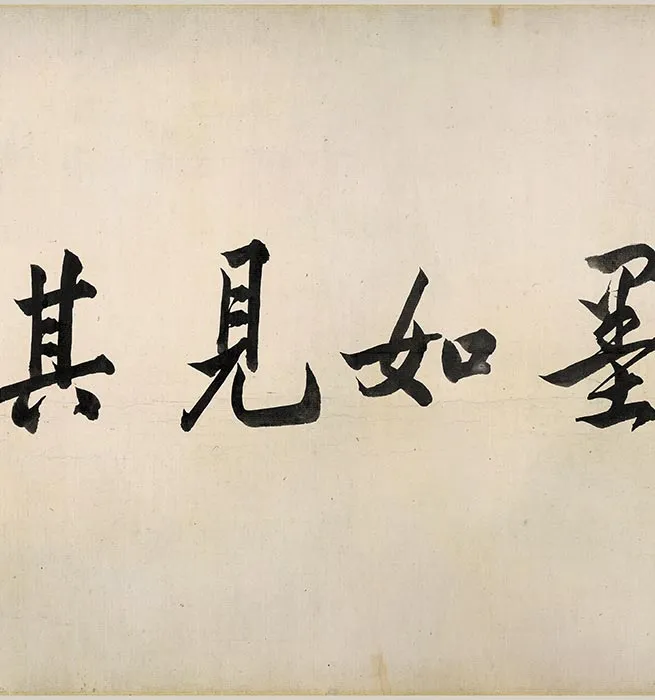 墨如見其